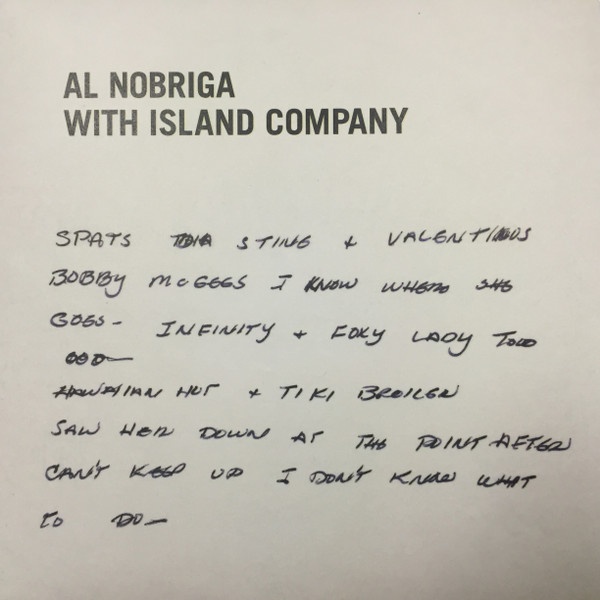 AL NOBRIGA
WITH ISLAND COMPANY
SPATS STING + VALENTINOS
BOBBY McGEES I KNOW WHERE SHE
GOES - INFINITY + FOXY LADY TOO
HAWAIIAN HUT + TIKI BROILER
SAW HER DOWN AT THE POINT AFTER
CAN'T KEEP UP I DON'T KNOW WHAT
TO DO -